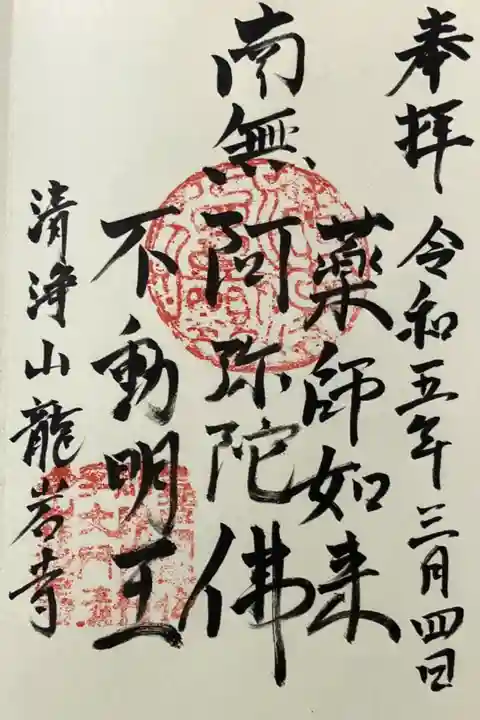 奉拝 令和五年三月四日
薬師如来
南無阿弥陀佛
不動明王
清浄山龍岩寺